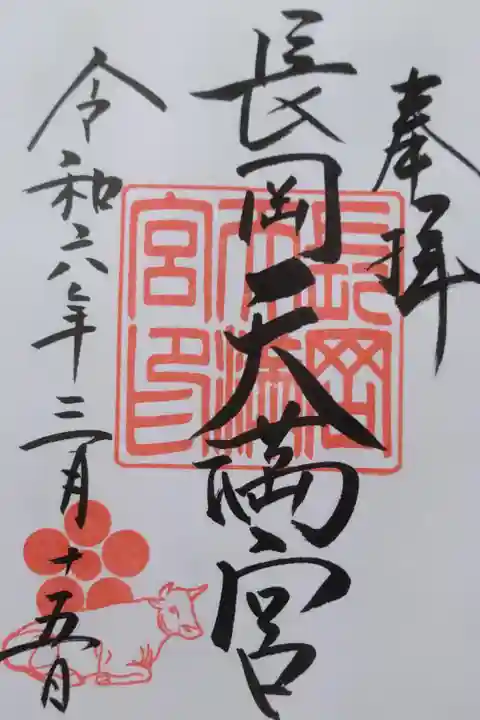 奉拝
長岡天満宮
令和六年三月十五日
長岡
天満
宮印